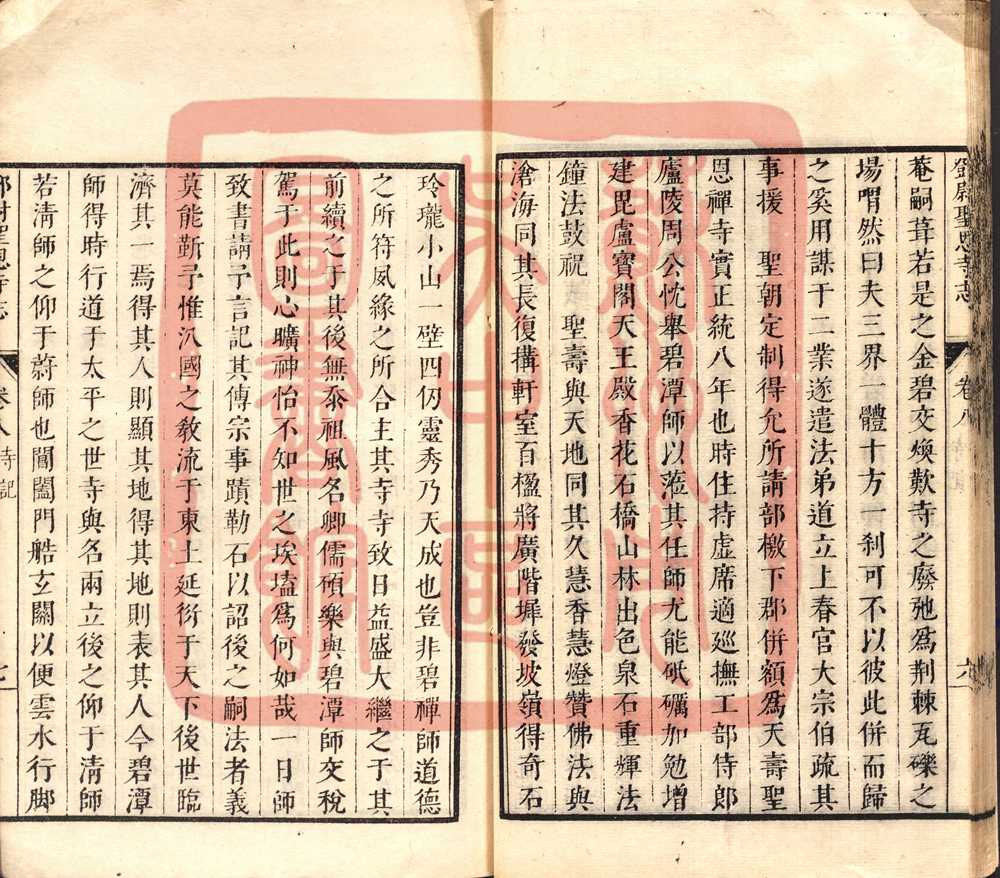 鄧尉聖恩寺志 卷八 六
菴嗣葺若是之金碧交煥歎寺之廢弛爲荆棘瓦礫之
場喟然曰夫三界一體十方一刹可不以彼此併而歸
之奚用謀于二業遂遣法弟道立上春官大宗伯疏其
事援 聖朝定制得允所請部檄下郡併額爲天壽聖
恩禪寺實正統八年也時住持虛席適巡撫工部侍郎
廬陵周公忱舉碧潭師以蒞其任師尤能砥礪加勉增
建毘盧寶閣天王殿香花石橋山林出色泉石重輝法
鐘法鼓祝 聖壽與天地同其久慧香慧燈贊佛法與
滄海同其長復搆軒室百楹將廣階墀發坡嶺得奇石
玲瓏小山一壁四仞靈秀乃天成也豈非碧禪師道德
之所符夙緣之所合主其寺寺致日益盛大繼之于其
前續之于其後無忝祖風名卿儒碩樂與碧潭師交稅
駕于此則心曠神怡不知世之埃𡏖爲何如哉一日師
致書請予言記其傳宗事蹟勒石以詔後之嗣法者義
莫能靳予惟汎國之敎流于東土延衍于天下後世臨
濟其一焉得其人則顯其地得其地則表其人今碧潭
師得時行道于太平之世寺與名兩立後之仰于淸師
若淸師之仰于蔚師也闔閭門艁玄關以便雲水行脚
鄧尉聖恩寺志 卷八 寺記 七